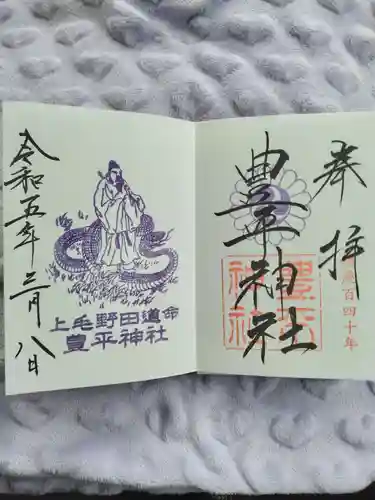 奉拝
豊平神社
豊平神社
百四十年
上毛野田道命
豊平神社
令和五年三月八日